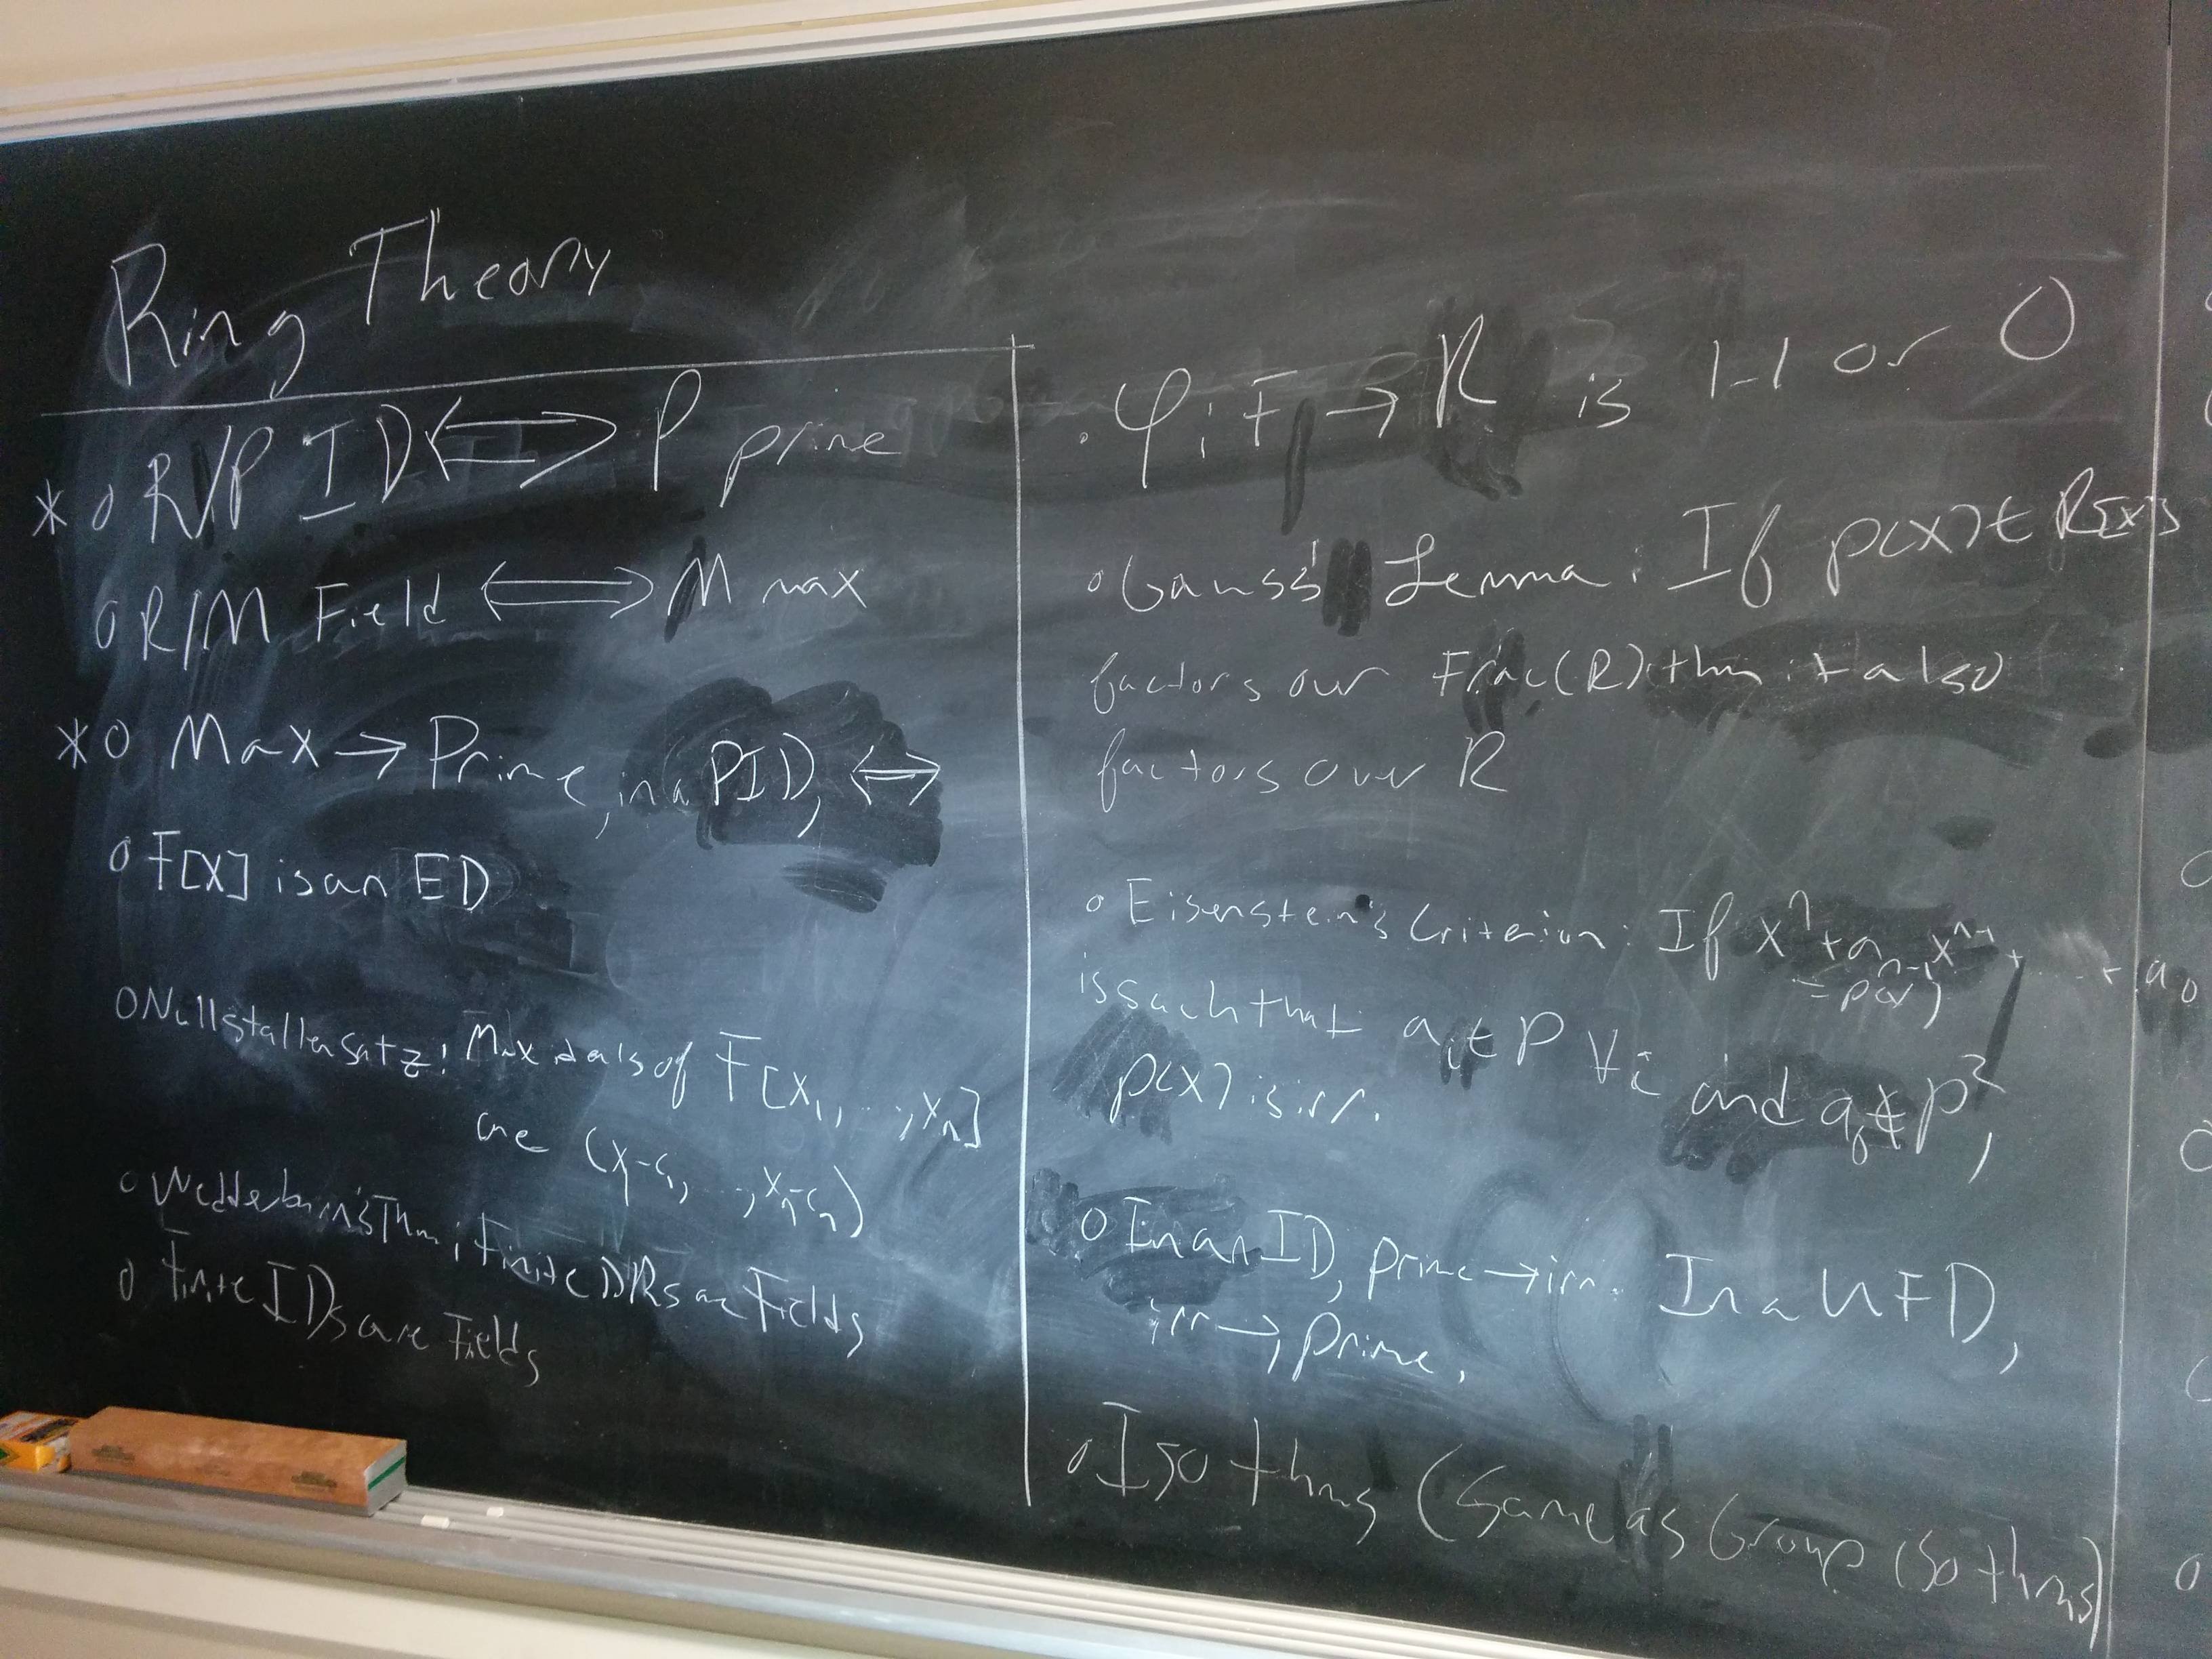 Ring Theory
* o R/P ID ⟺ P prime
o R/M Field ⟺ M max
* o Max → Prime, in a PID, ⟺
o F[x] is an ED
o Nullstallensatz: Max ideals of F[x₁, ..., xₙ]
are (x₁-c₁, ..., xₙ-cₙ)
o Wedderburn's Thm: Finite DRs are Fields
o Finite IDs are Fields
· φ: F → R is 1-1 or 0
o Gauss' Lemma: If p(x) ∈ R[x]
factors over Frac(R) then it also
factors over R
o Eisenstein's Criterion: If xⁿ + aₙ₋₁xⁿ⁻¹ + ... + a₀
= p(x)
is such that aᵢ ∈ P ∀i and a₀ ∉ P²,
p(x) is irr.
o In an ID, prime → irr. In a UFD,
irr → prime.
o Iso thms (Same as Group Iso thms)